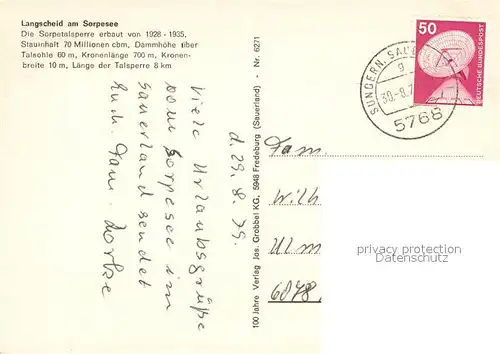 Langscheid am Sorpesee
Die Sorpetalsperre erbaut von 1928 - 1935.
Stauinhalt 70 Millionen cbm, Dammhöhe über
Talsohle 60 m, Kronenlänge 700 m, Kronen-
breite 10 m, Länge der Talsperre 8 km
d. 29. 8. 79.
Viele Urlaubsgrüße
vom Sorpesee im
Sauerland sendet
Euch Fam.
100 Jahre Verlag Jos. Grobbel KG, 5948 Fredeburg (Sauerland) - Nr. 6271
50
DEUTSCHE BUNDESPOST
SUNDERN, SAUE
g
30.-8.7
5768
Fam.
Wilh
Ulm
6078
privacy protection
Datenschutz